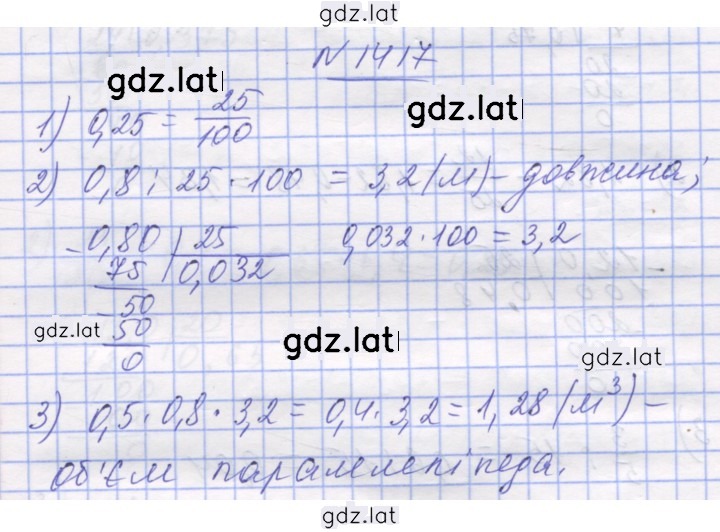 gdz.lat
N 1417
gdz.lat
gdz.lat
1) 0,25 = 25/100
2) 0,8 : 25 · 100 = 3,2 (м) - довжина;
- 0,80 | 25    0,032 · 100 = 3,2
75 | 0,032
- 50
gdz.lat
50
gdz.lat
0
gdz.lat
3) 0,5 · 0,8 · 3,2 = 0,4 · 3,2 = 1,28 (м³) -
об'єм паралелепіпеда.
gdz.lat